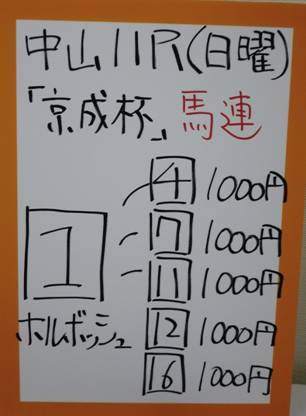 中山11R(日曜)
「京成杯」馬連
4 1000円
7 1000円
1 11 1000円
ホルボッシュ 12 1000円
16 1000円